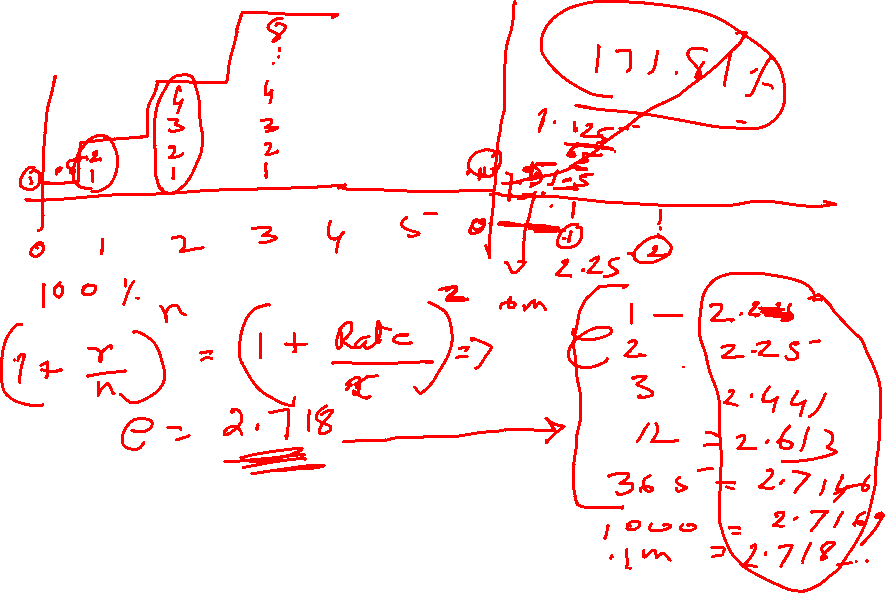 8
:
4 4
3 3
2 2 2
1 1 1
1 .8
0 1 2 3 4 5
100 %
171.81%
1.
.125
0 1 2
2.25
(1 + r/n)^n = (1 + Rate/x)^2 =>
e = 2.718
e
1 - 2.
2 2.25
3 2.441
12 = 2.613
365 = 2.7146
1000 = 2.7169
.1m = 2.718...